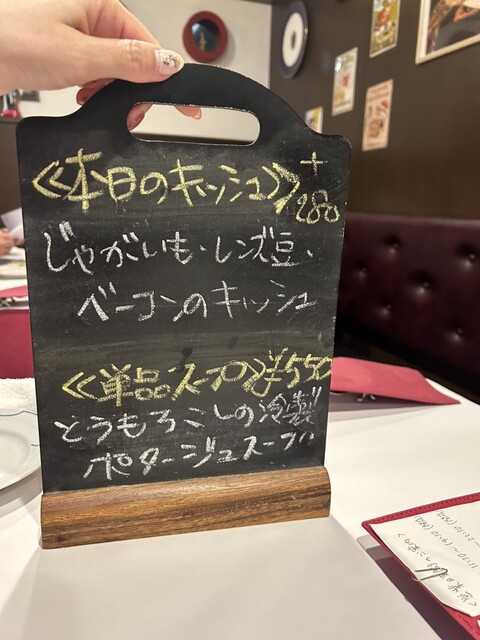 《本日のキッシュ》+280
じゃがいも・レンズ豆・
ベーコンのキッシュ
《単品スープ》¥550
とうもろこしの冷製
ポタージュスープ